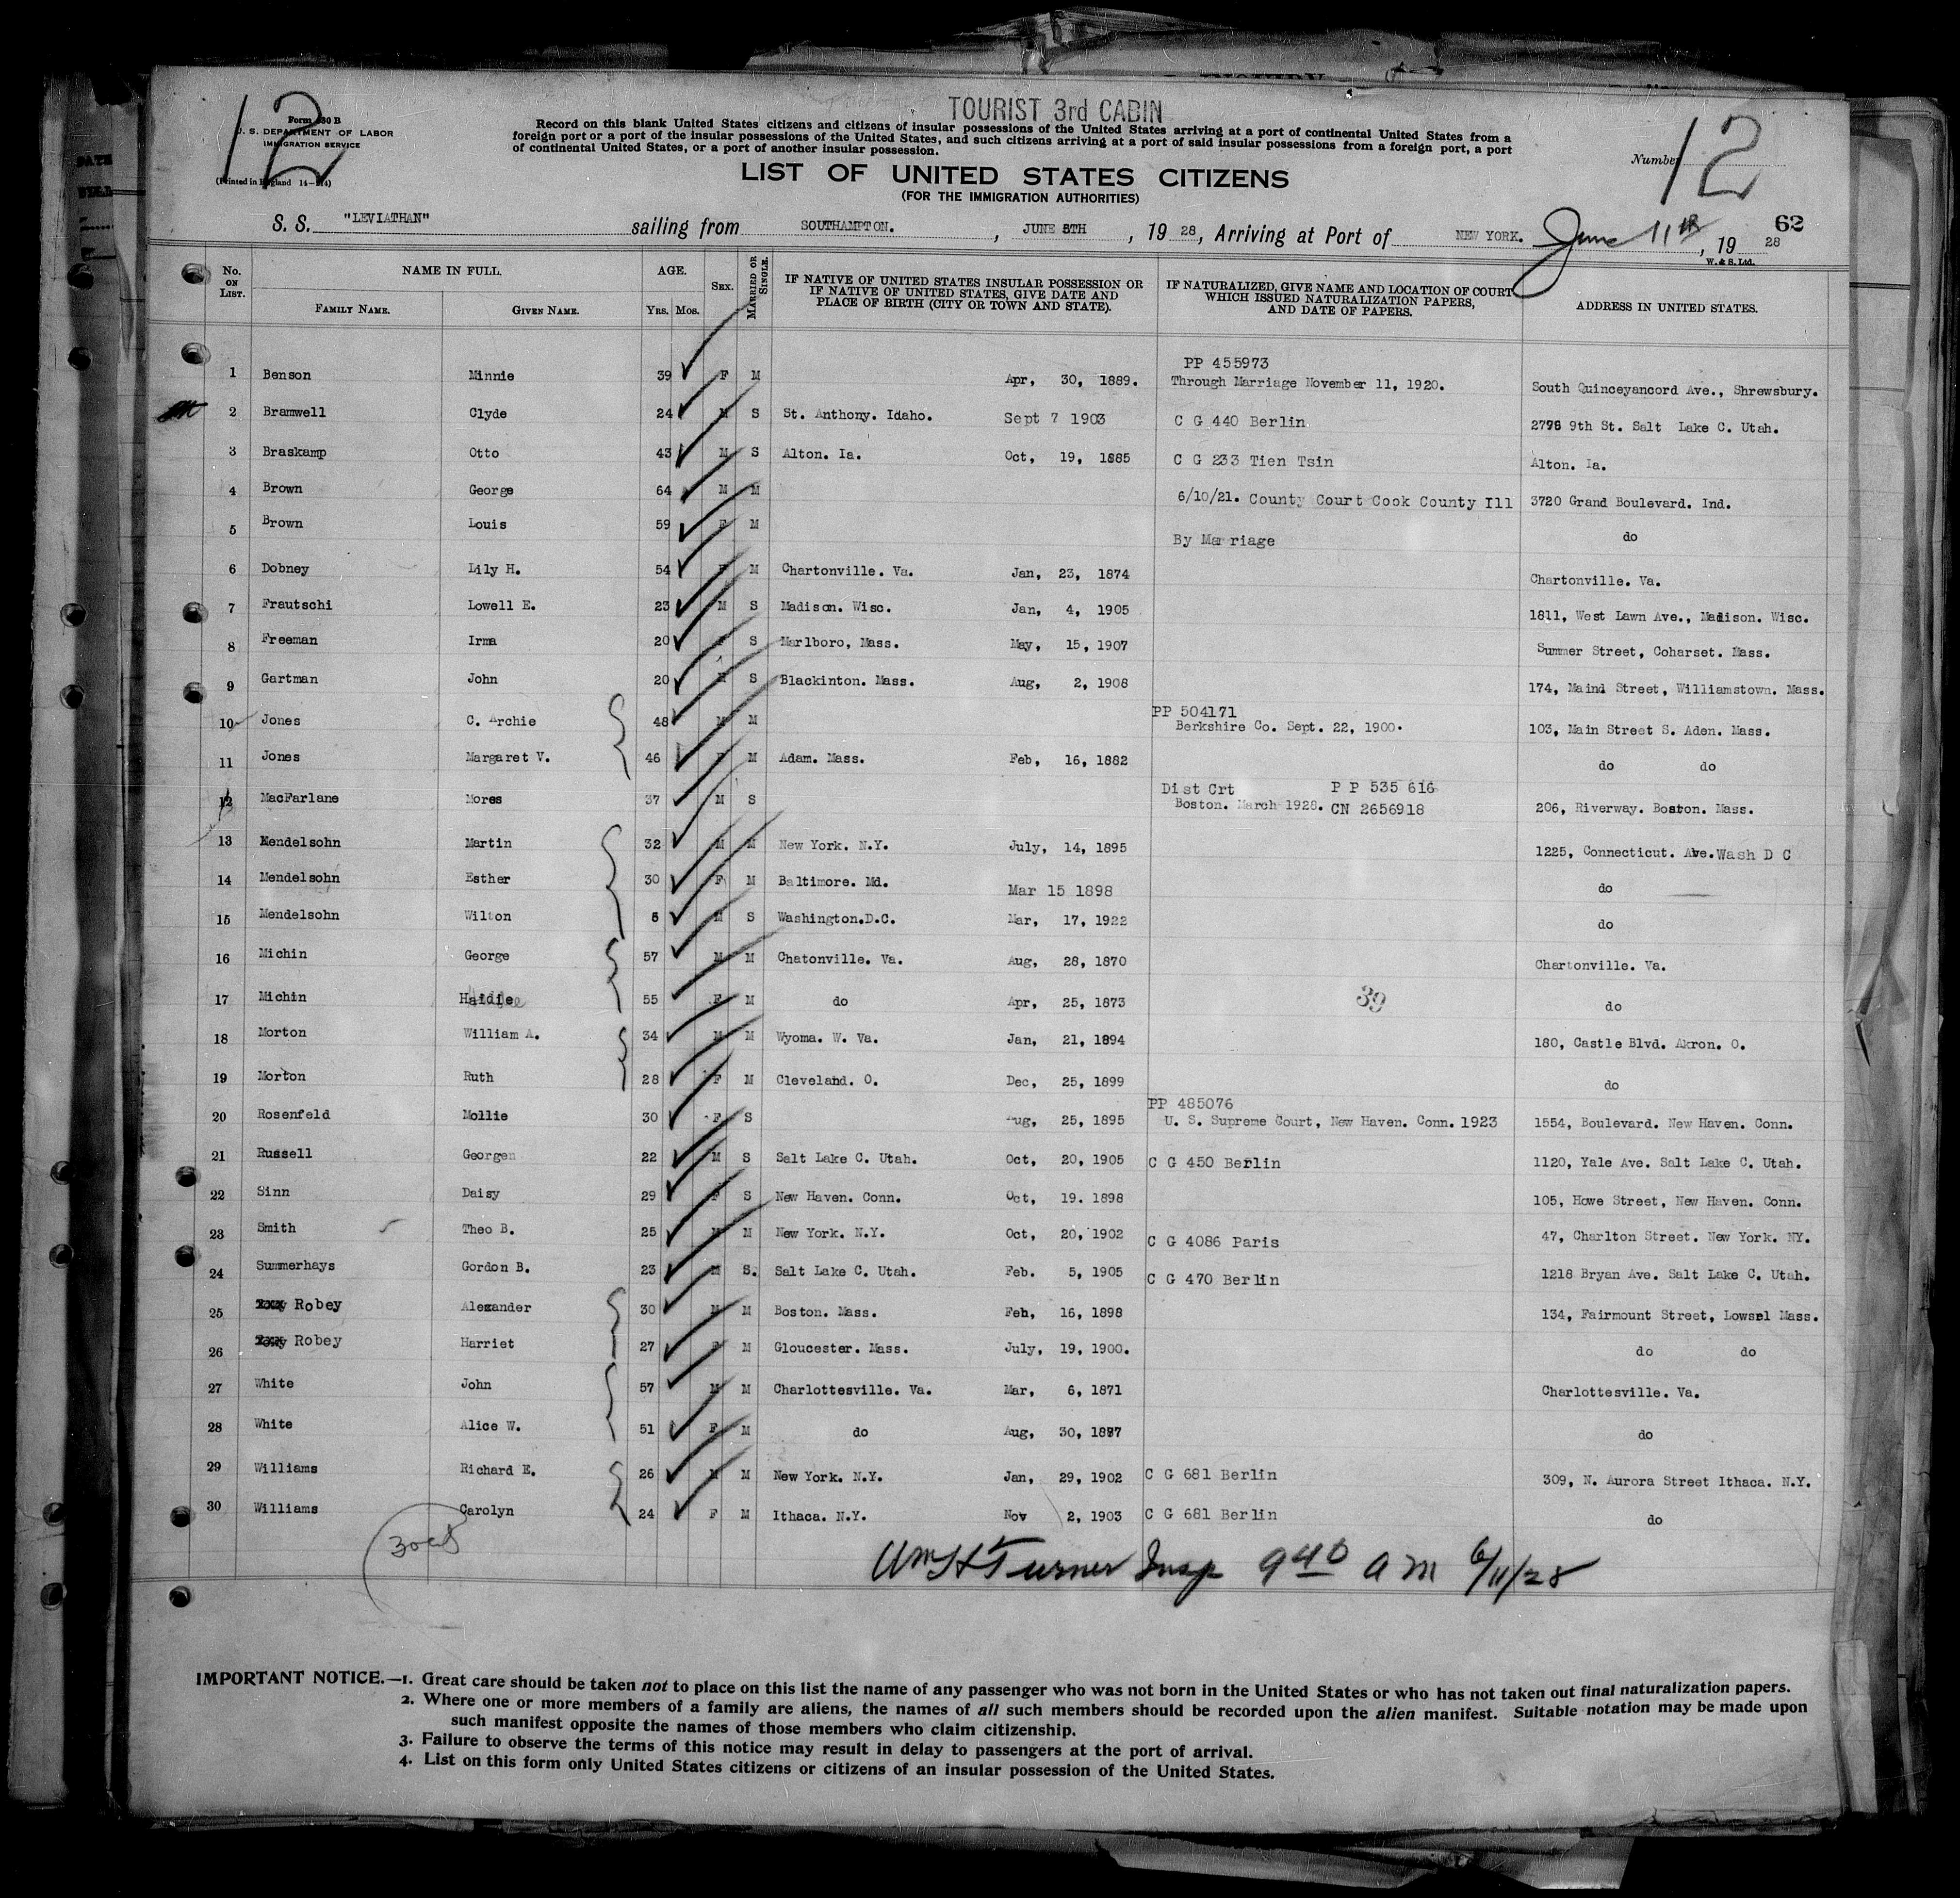 TOURIST 3rd CABIN
12
Form 630 B
U. S. DEPARTMENT OF LABOR
IMMIGRATION SERVICE
(Printed in England
Record on this blank United States citizens and citizens of insular possessions of the United States arriving at a port of continental United States from a
foreign port or a port of the insular possessions of the United States, and such citizens arriving at a port of said insular possessions from a foreign port, a port
of continental United States, or a port of another insular possession.
Number 12
LIST OF UNITED STATES CITIZENS
(FOR THE IMMIGRATION AUTHORITIES)
62
S. S. "LEVIATHAN" sailing from SOUTHAMPTON. , JUNE 5TH , 19 28 , Arriving at Port of NEW YORK. June 11th , 19 28
W. & S. Ltd.
No. ON LIST. NAME IN FULL. FAMILY NAME. GIVEN NAME. AGE. Yrs. Mos. SEX. MARRIED OR SINGLE. IF NATIVE OF UNITED STATES INSULAR POSSESSION OR IF NATIVE OF UNITED STATES, GIVE DATE AND PLACE OF BIRTH (CITY OR TOWN AND STATE). IF NATURALIZED, GIVE NAME AND LOCATION OF COURT WHICH ISSUED NATURALIZATION PAPERS, AND DATE OF PAPERS. ADDRESS IN UNITED STATES.
PP 455973
1 Benson Minnie 39 F M Apr, 30, 1889. Through Marriage November 11, 1920. South Quinceyancord Ave., Shrewsbury.
2 Bramwell Clyde 24 M S St. Anthony. Idaho. Sept 7 1903 C G 440 Berlin 2798 9th St. Salt Lake C. Utah.
3 Braskamp Otto 43 M S Alton. Ia. Oct, 19, 1885 C G 233 Tien Tsin Alton. Ia.
4 Brown George 64 M M 6/10/21. County Court Cook County Ill 3720 Grand Boulevard. Ind.
5 Brown Louis 59 F M By Marriage do
6 Dobney Lily H. 54 F M Chartonville. Va. Jan, 23, 1874 Chartonville. Va.
7 Frautschi Lowell E. 23 M S Madison. Wisc. Jan, 4, 1905 1811, West Lawn Ave., Madison. Wisc.
8 Freeman Irma 20 F S Marlboro, Mass. May, 15, 1907 Summer Street, Coharset. Mass.
9 Gartman John 20 M S Blackinton. Mass. Aug, 2, 1908 174, Maind Street, Williamstown. Mass.
PP 504171
10 Jones C. Archie 48 M M Berkshire Co. Sept. 22, 1900. 103, Main Street S. Aden. Mass.
11 Jones Margaret V. 46 F M Adam. Mass. Feb, 16, 1882 do do
Dist Crt P P 535 616
12 MacFarlane Mores 37 M S Boston. March 1928. CN 2656918 206, Riverway. Boston. Mass.
13 Mendelsohn Martin 32 M M New York. N.Y. July, 14, 1895 1225, Connecticut. Ave. Wash D C
14 Mendelsohn Esther 30 F M Baltimore. Md. Mar 15 1898 do
15 Mendelsohn Wilton 6 M S Washington.D.C. Mar, 17, 1922 do
16 Michin George 57 M M Chatonville. Va. Aug, 28, 1870 Chartonville. Va.
17 Michin 55 F M do Apr, 25, 1873 39 do
18 Morton William A. 34 M M Wyoma. W. Va. Jan, 21, 1894 180, Castle Blvd. Akron. O.
19 Morton Ruth 28 F M Cleveland. O. Dec, 25, 1899 do
PP 485076
20 Rosenfeld Mollie 30 F S Aug, 25, 1895 U. S. Supreme Court, New Haven. Conn. 1923 1554, Boulevard. New Haven. Conn.
21 Russell Georgen 22 M S Salt Lake C. Utah. Oct, 20, 1905 C G 450 Berlin 1120, Yale Ave. Salt Lake C. Utah.
22 Sinn Daisy 29 F S New Haven. Conn. Oct, 19. 1898 105, Howe Street, New Haven. Conn.
23 Smith Theo B. 25 M M New York. N.Y. Oct, 20, 1902 C G 4086 Paris 47, Charlton Street. New York. NY.
24 Summerhays Gordon B. 23 M S. Salt Lake C. Utah. Feb. 5, 1905 C G 470 Berlin 1218 Bryan Ave. Salt Lake C. Utah.
25 Robey Alexander 30 M M Boston. Mass. Feh, 16, 1898 134, Fairmount Street, Lowsel Mass.
26 Robey Harriet 27 F M Gloucester. Mass. July, 19, 1900. do do
27 White John 57 M M Charlottesville. Va. Mar, 6, 1871 Charlottesville. Va.
28 White Alice W. 51 F M do Aug, 30, 1877 do
29 Williams Richard E. 26 M M New York. N.Y. Jan, 29, 1902 C G 681 Berlin 309, N. Aurora Street Ithaca. N.Y.
30 Williams Carolyn 24 F M Ithaca. N.Y. Nov 2, 1903 C G 681 Berlin do
Wm H Turner Insp 9 40 a m 6/11/28
IMPORTANT NOTICE.—1. Great care should be taken not to place on this list the name of any passenger who was not born in the United States or who has not taken out final naturalization papers.
2. Where one or more members of a family are aliens, the names of all such members should be recorded upon the alien manifest. Suitable notation may be made upon
such manifest opposite the names of those members who claim citizenship.
3. Failure to observe the terms of this notice may result in delay to passengers at the port of arrival.
4. List on this form only United States citizens or citizens of an insular possession of the United States.